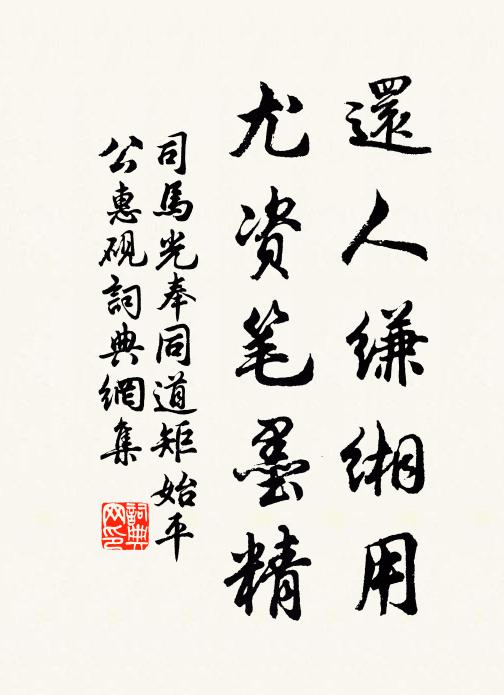 還人縑緗用
尤资笔墨精
司馬光奉同道矩始平
公惠砚詞典網集
詞典網印